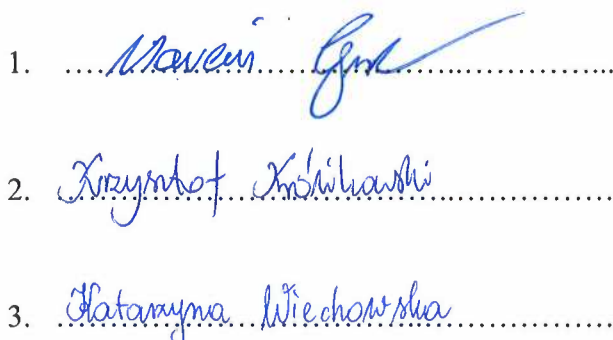 1. Marcin
2. Krzysztof Królikowski
3. Katarzyna Wiechowska